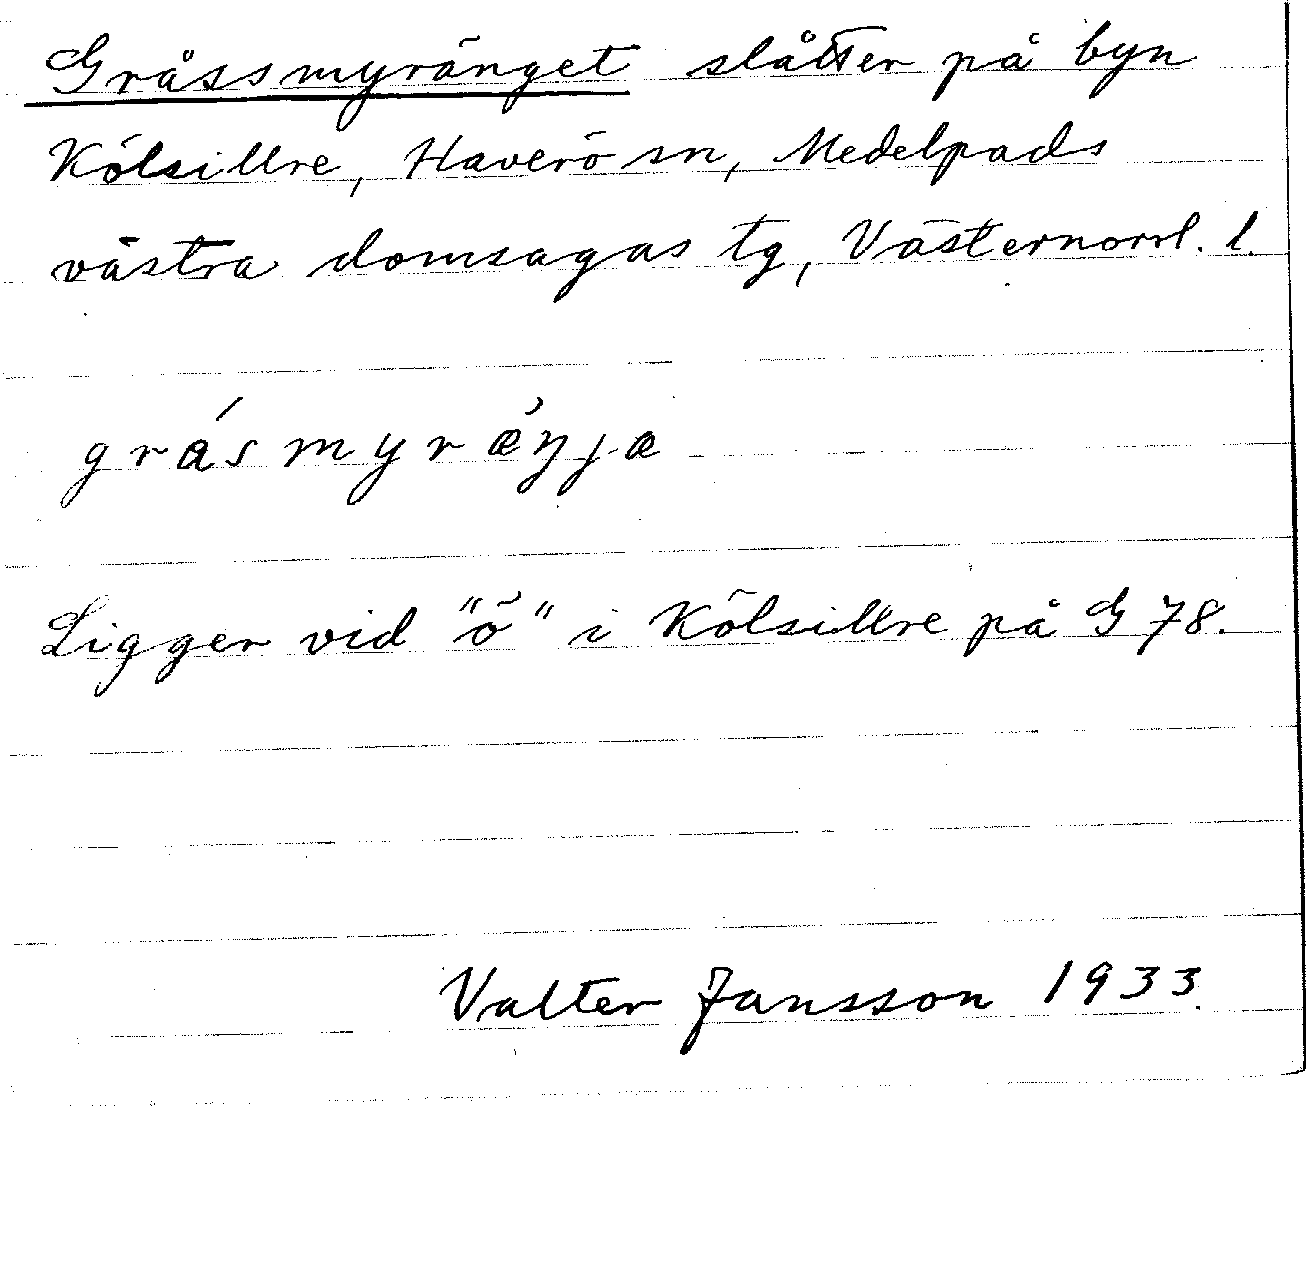 Gråssmyränget slåtter på byn
Kölsillre, Haverö sn, Medelpads
västra domsagas tg, Västernorrl. l.
grásmyrǽŋjæ
Ligger vid "ö" i Kölsillre på G 78.
Valter Jansson 1933.